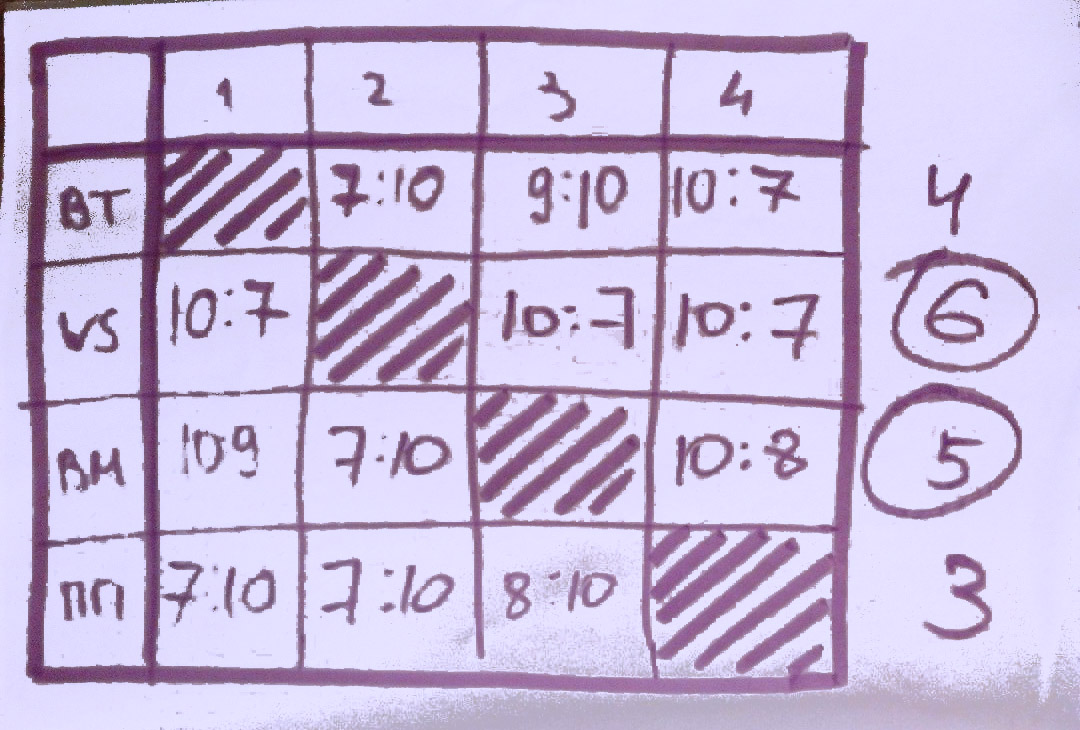 1 2 3 4
ВТ 7:10 9:10 10:7 4
VS 10:7 10:7 10:7 6
ВМ 109 7:10 10:8 5
ПП 7:10 7:10 8:10 3